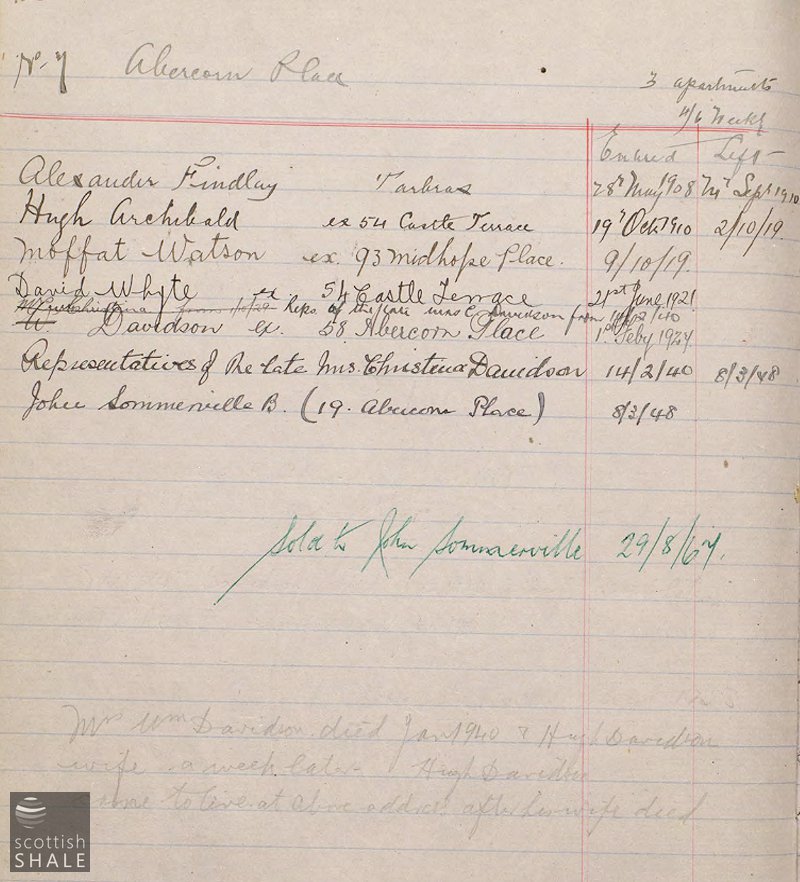 No. 7 Abercorn Place
3 apartments
4/6 Weekly
Entered Left
Alexander Findlay Tarbrax 28th May 1908 Sept 1910
Hugh Archibald ex 54 Castle Terrace 19th Oct. 1910 2/10/19.
Moffat Watson ex. 93 Midhope Place. 9/10/19.
David Whyte ex 54 Castle Terrace 21st June 1921
Christina from Reps of the late Mrs C. Davidson from 14/2/40
Davidson ex. 58 Abercorn Place 1st Feby
Representatives of the late Mrs. Christina Davidson 14/2/40 8/3/48
John Sommerville B. (19. Abercorn Place) 8/3/48
Sold to John Sommerville 29/8/67.
Mrs Wm Davidson died Jan 1940 & Hugh Davidson
wife a week later Hugh Davidson
came to live at above address after his wife died
scottish
SHALE